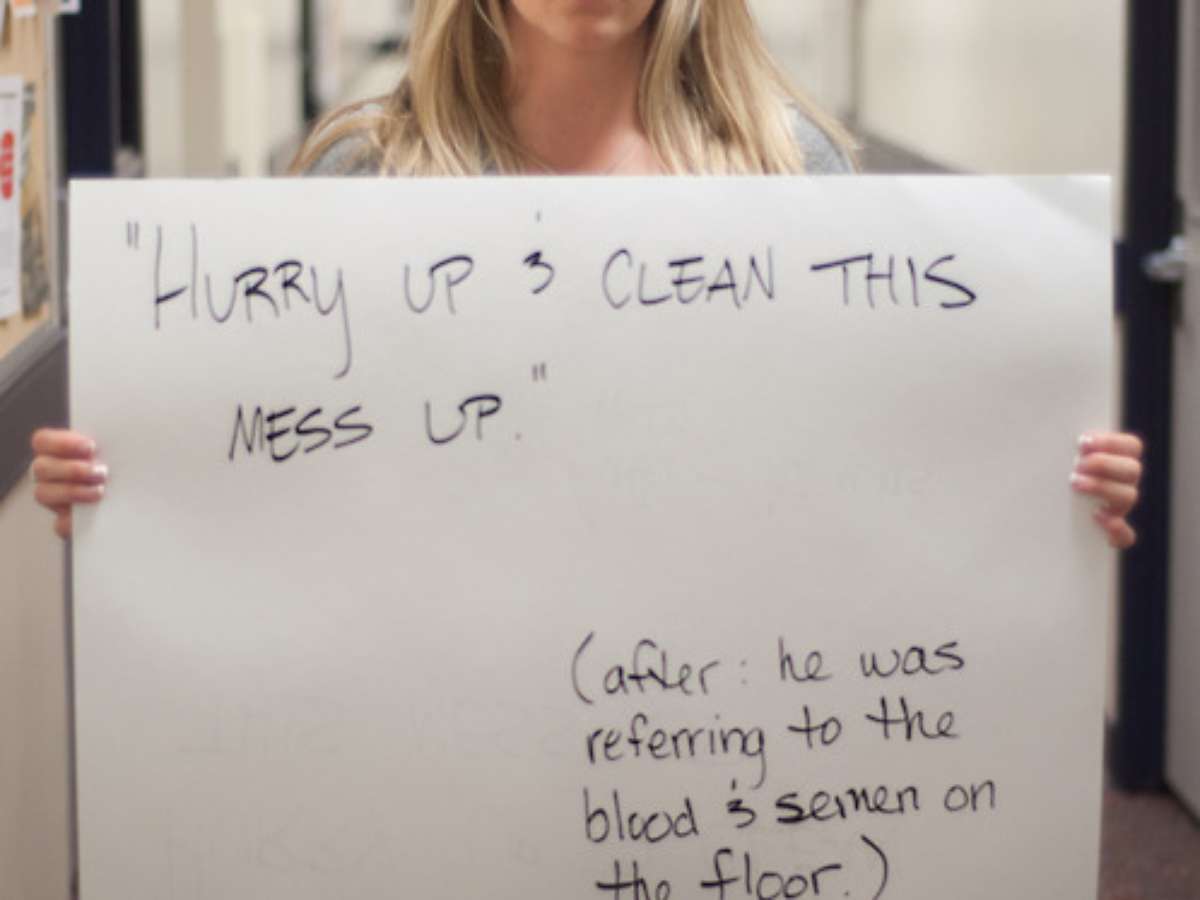 "HURRY UP & CLEAN THIS
MESS UP."
(after: he was
referring to the
blood & semen on
the floor.)